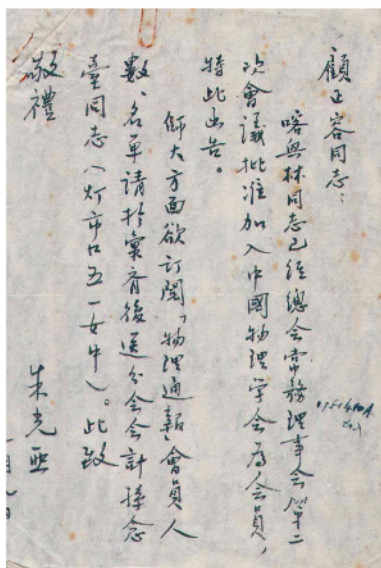 顧正容同志:
喀興林同志已經總会常務理事会第二
次會議批准加入中國物理学会為会員,
特此函告。
師大方面欲訂閱「物理通報」會員人
數、名單請於彙齊後送分会会計孫念
臺同志(灯市口五一女中)。此致
敬禮
朱光亞